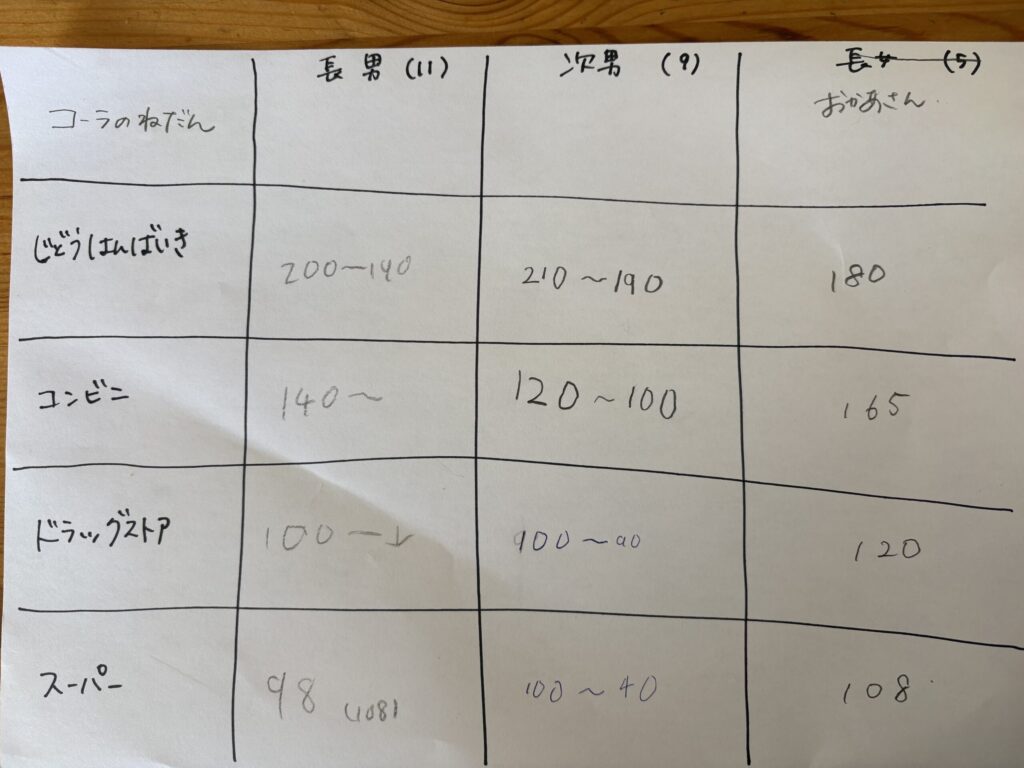 長男 (11) 次男 (9) 長女 (5)
コーラのねだん おかあさん
じどうはんばいき 200〜140 210〜190 180
コンビニ 140〜 120〜100 165
ドラッグストア 100ー↓ 100〜90 120
スーパー 98 (108) 100〜40 108